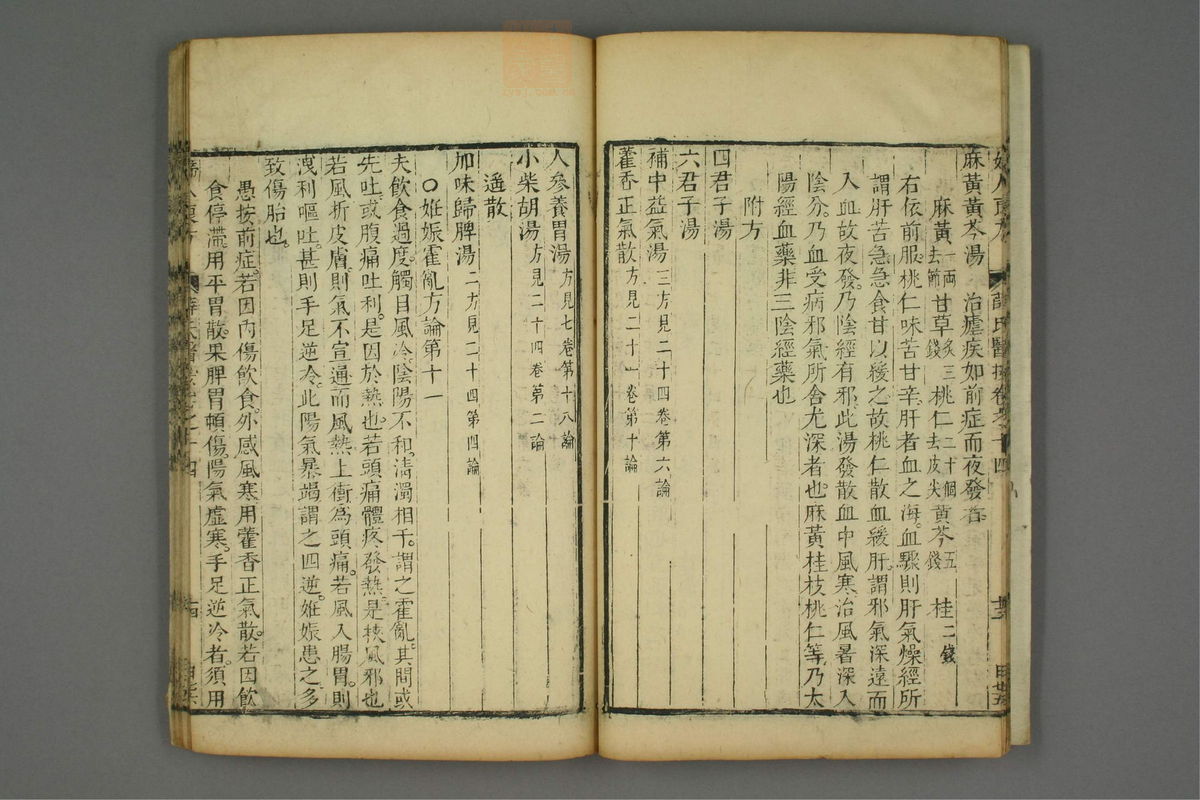 麻黃黃芩湯　治瘧疾如前症而夜發者
麻黃一兩去節甘草炙三錢桃仁二十個去皮尖黃芩五錢　桂二錢
右依前服桃仁味苦甘辛肝者血之海血驟則肝氣燥經所
謂肝苦急急食甘以緩之故桃仁散血緩肝謂邪氣深遠而
入血故夜發乃陰經有邪此湯發散血中風寒治風暑深入
陰分乃血受病邪氣所舍尤深者也麻黃桂枝桃仁等乃太
陽經血藥非三陰經藥也
附方
四君子湯
六君子湯
補中益氣湯三方見二十四卷第六論
藿香正氣散方見二十一卷第十論
人參養胃湯方見七卷第十八論
小柴胡湯方見二十四卷第二論
逍遙散
加味歸脾湯二方見二十四第四論
○姙娠霍亂方論第十一
夫飲食過度觸目風冷陰陽不和清濁相干謂之霍亂其間或
先吐或腹痛吐利是因於熱也若頭痛體疼發熱是挾風邪也
若風折皮膚則氣不宣通而風熱上衝為頭痛若風入腸胃則
洩利嘔吐甚則手足逆冷此陽氣暴竭謂之四逆姙娠患之多
致傷胎也
愚按前症若因內傷飲食外感風寒用藿香正氣散若因飲
食停滯用平胃散果脾胃頓傷陽氣虛寒手足逆冷者須用